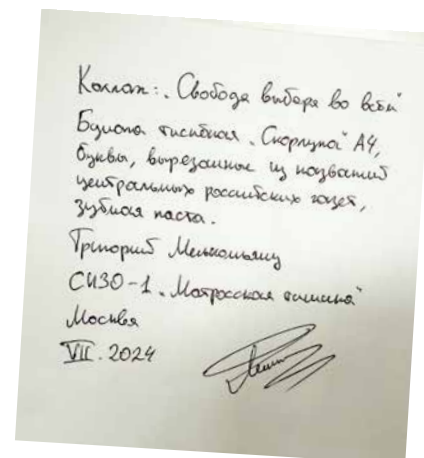 Коллаж: „Свобода выбора во всём“
Бумага писчебная „Скорлупа“ А4,
буквы, вырезанные из названий
центральных российских газет,
зубная паста.
Григорий Мельконьянц
СИЗО-1 „Матросская тишина“
Москва
VII. 2024